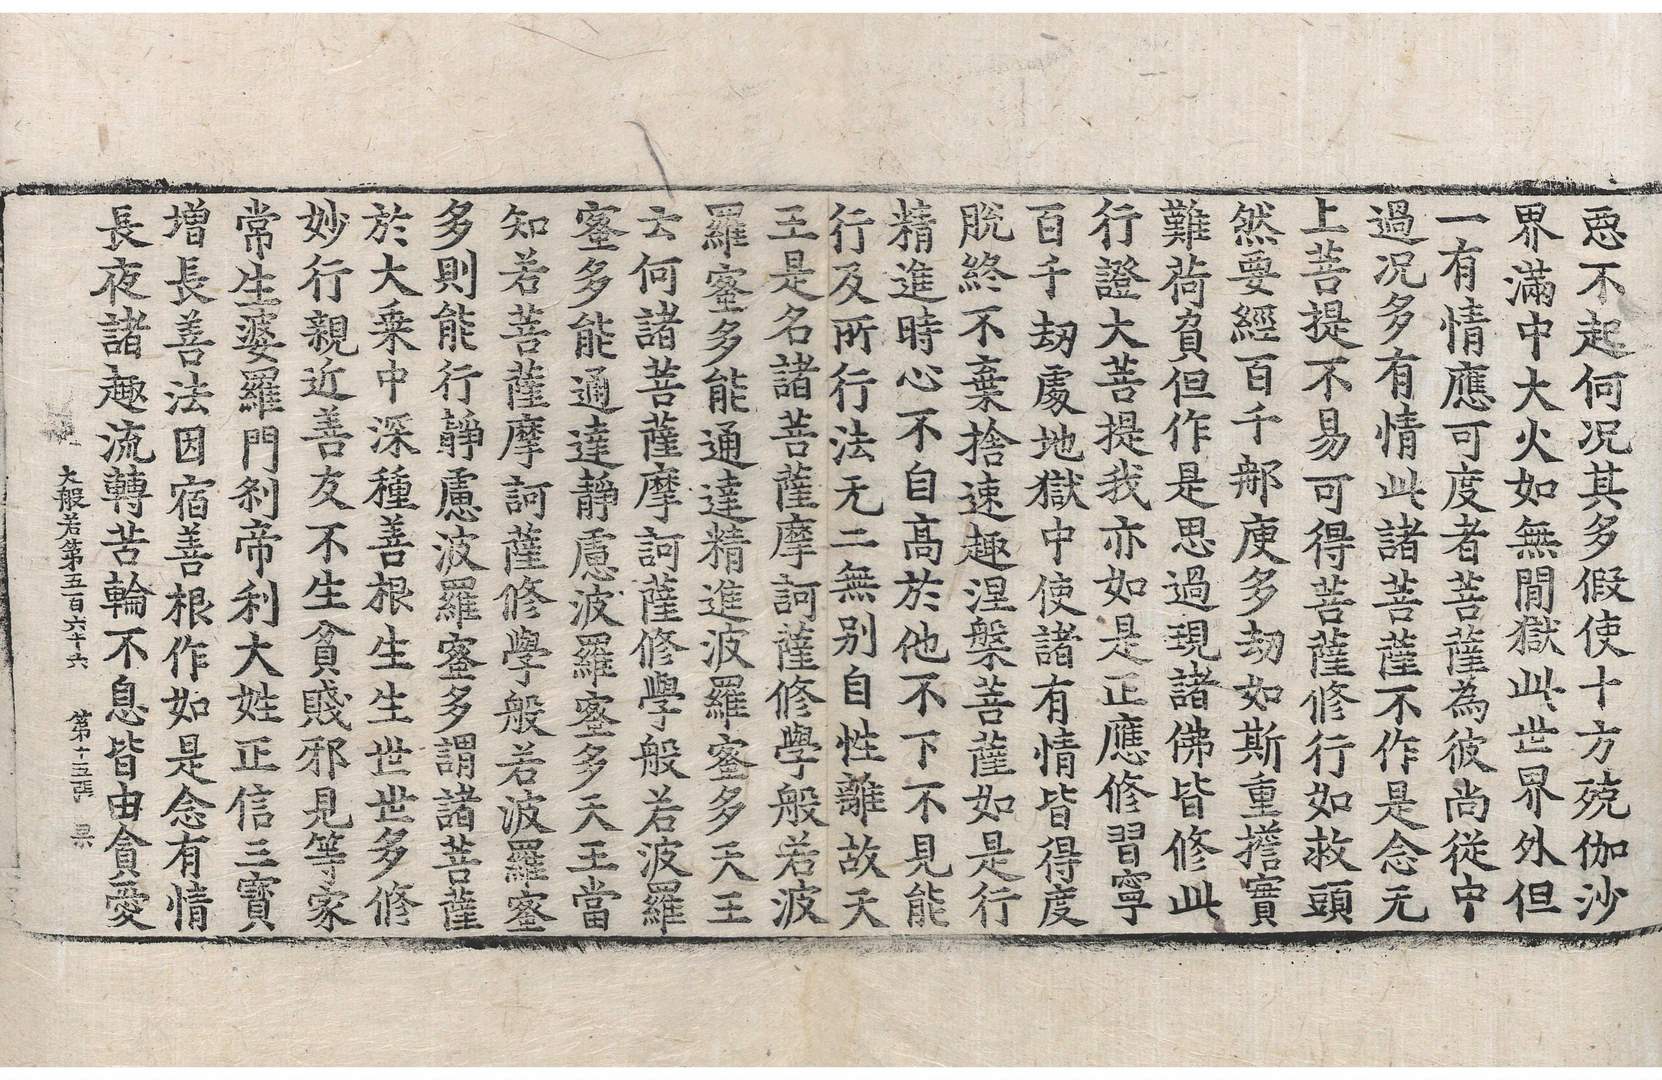 惡不起何况其多假使十方殑伽沙
界滿中大火如無間獄此世界外但
一有情應可度者菩薩為彼尚從中
過况多有情此諸菩薩不作是念无
上菩提不易可得菩薩修行如救頭
然要經百千那庾多劫如斯重擔實
難荷負但作是思過現諸佛皆修此
行證大菩提我亦如是正應修習寧
百千劫處地獄中使諸有情皆得度
脫終不棄捨速趣涅槃菩薩如是行
精進時心不自高於他不下不見能
行及所行法无二無別自性離故天
王是名諸菩薩摩訶薩修學般若波
羅蜜多能通達精進波羅蜜多天王
云何諸菩薩摩訶薩修學般若波羅
蜜多能通達靜慮波羅蜜多天王當
知若菩薩摩訶薩修學般若波羅蜜
多則能行靜慮波羅蜜多謂諸菩薩
於大乘中深種善根生生世世多修
妙行親近善友不生貧賤邪見等家
常生婆羅門剎帝利大姓正信三寶
增長善法因宿善根作如是念有情
長夜諸趣流轉苦輪不息皆由貪愛
大般若第五百六十六 第十五張 果